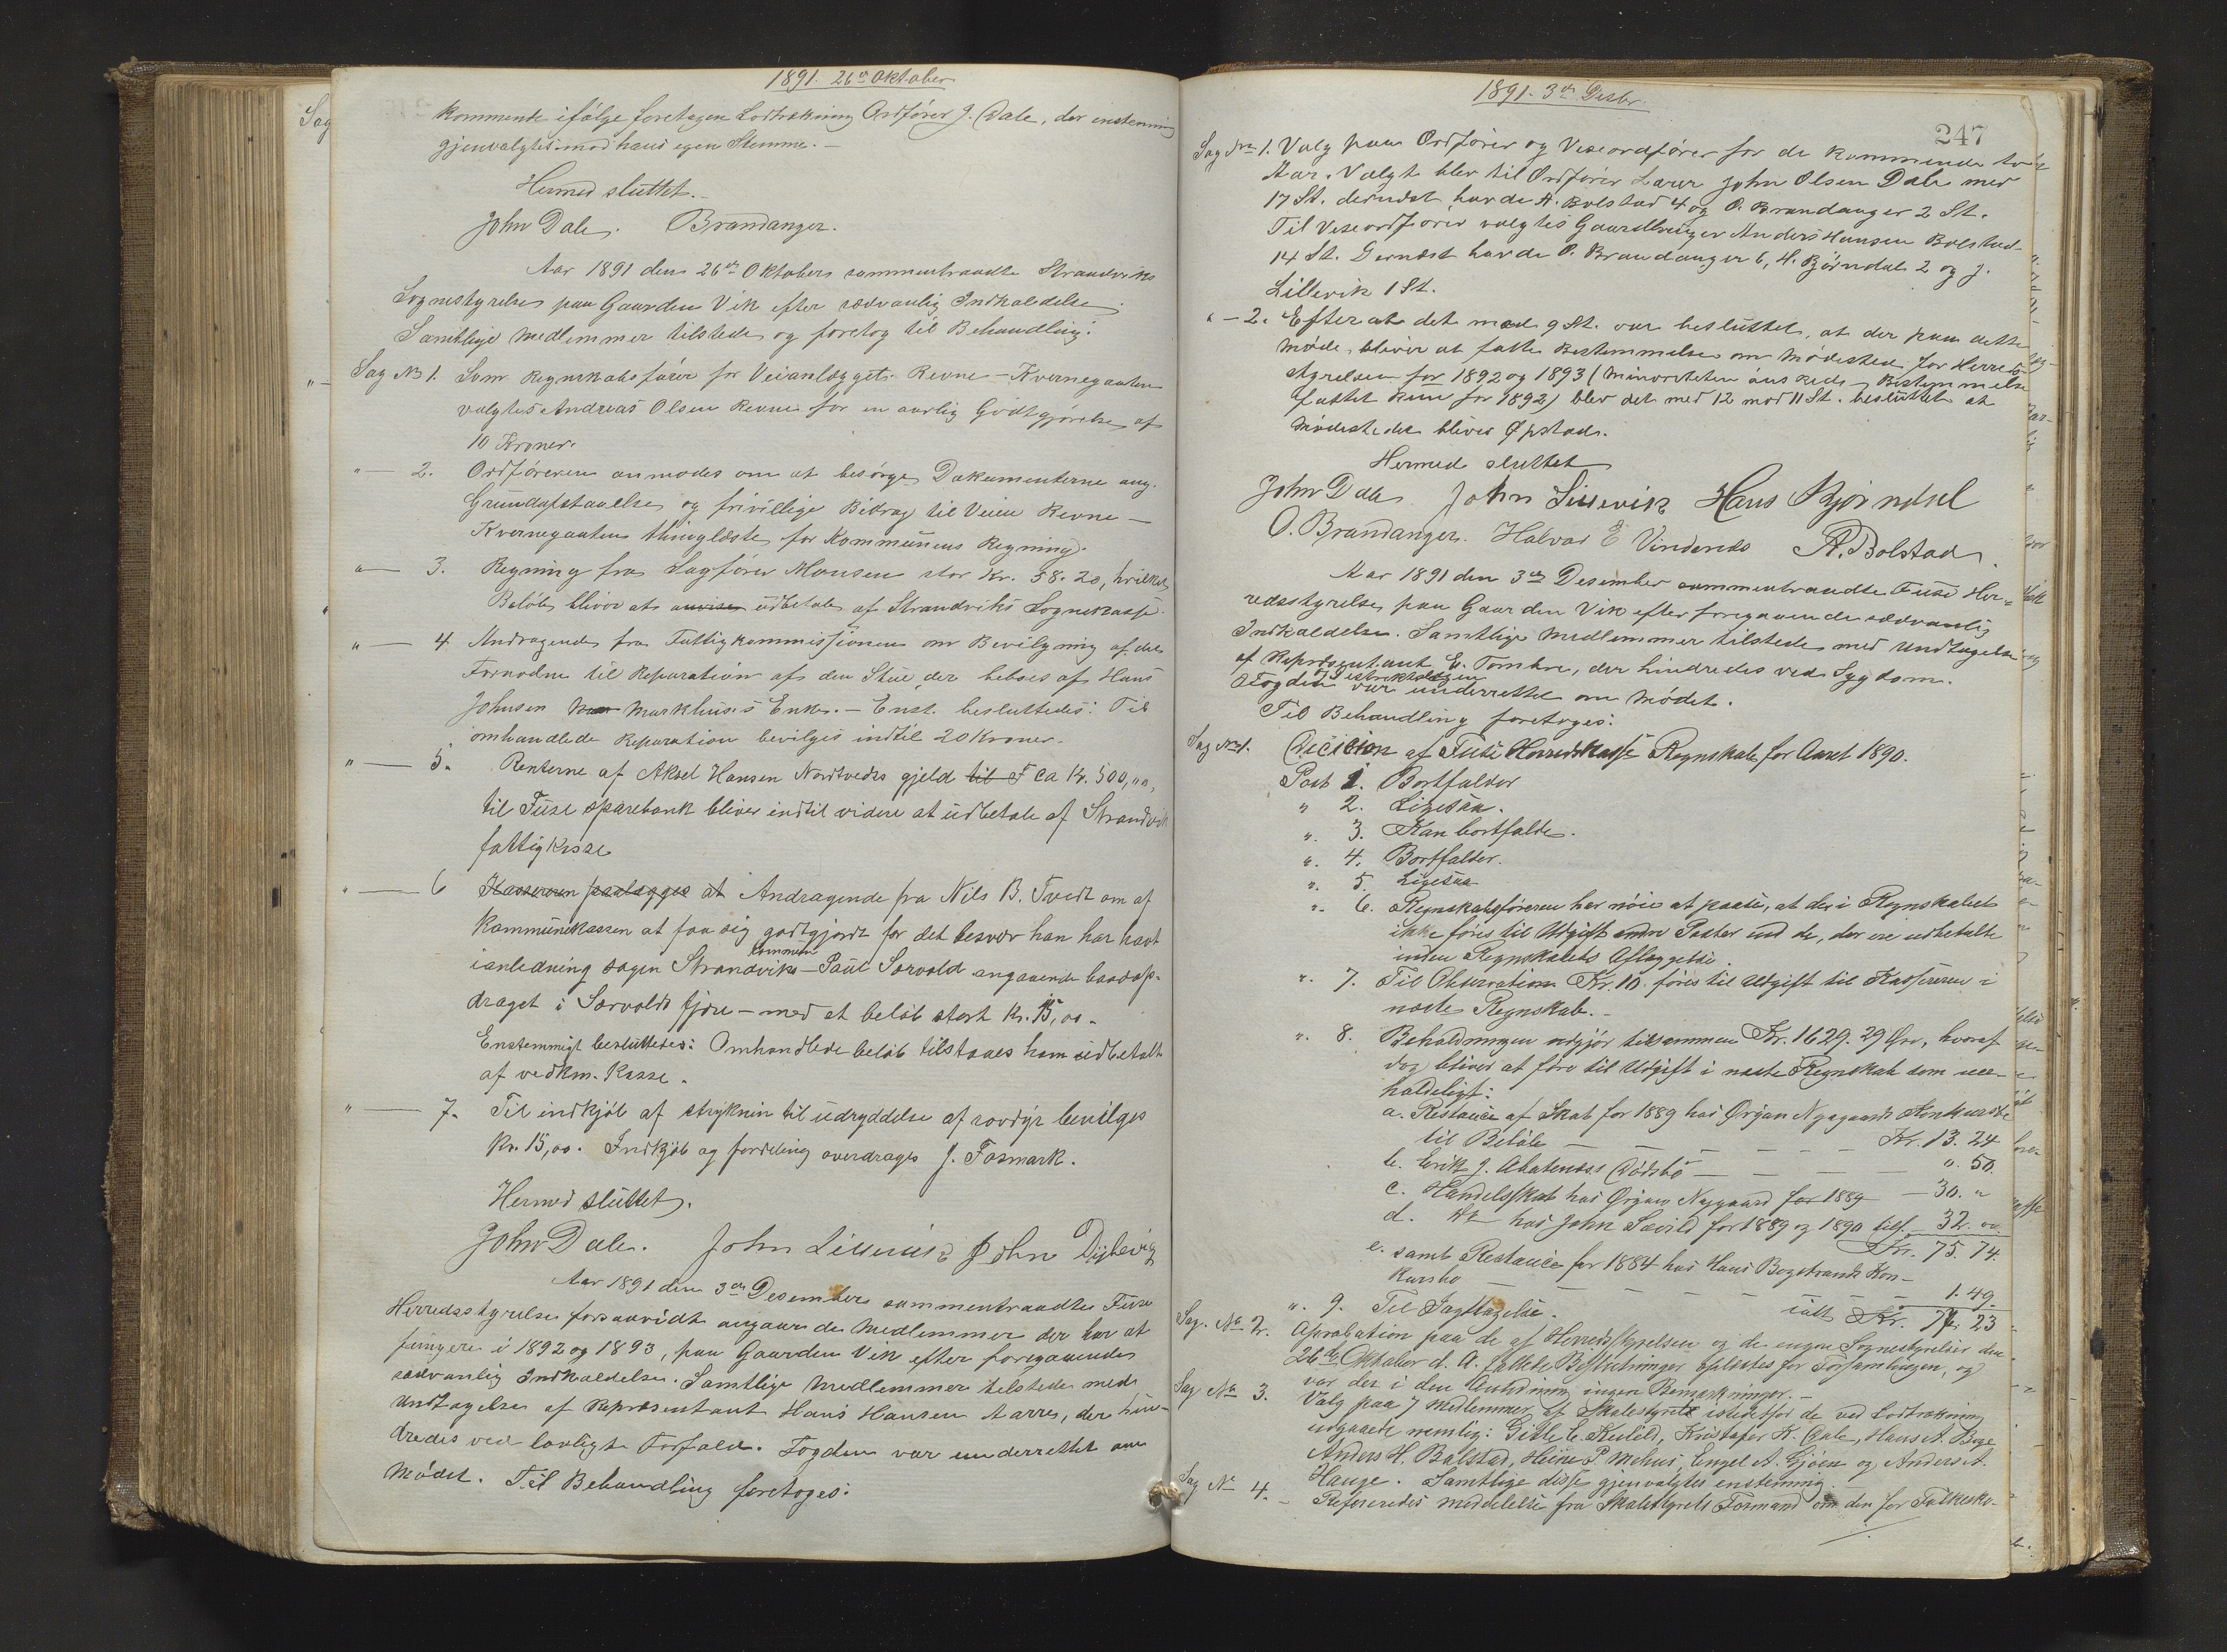 1891. 26de Oktober
kommende ifølge foretagen Lodtrækning Ordfører J. Dale, der enstemmig
gjenvalgtes mod hans egen Stemme. —
Hermed sluttet. —
John Dale. Brandanger.
Aar 1891 den 26de Oktober sammentraadte Strandviks
Sognestyrelse paa Gaarden Vik efter sædvanlig Indkaldelse.
Samtlige Medlemmer tilstede og foretog til Behandling:
Sag No 1. Som Regnskabsfører for Veianlægget Revne – Kvernegauten
valgtes Andreas Olsen Revne for en aarlig Godtgjørelse af
10 Kroner.
" — 2. Ordføreren anmodes om at besørge Dokumenterne ang.
Grundafstaaelse og frivillige Bidrag til Veien Revne —
Kvernegauten thinglæste for Kommunens Regning.
" — 3. Regning fra Sagfører Monsen stor Kr. 58.20, hvilket
Beløb bliver at anvises udbetale af Strandviks Sognekasse.
" — 4. Andragende fra Fattigkommissionen om Bevilgning af det
Fornødne til Reparation af den Stue der beboes af Hans
Johnsen Markhuses Enke. — Enst. besluttedes: Til
omhandlede Reparation bevilges indtil 20 Kroner.
" — 5. Renterne af Aksel Hansen Nordtveds gjeld til F ca Kr. 500,00,
til Fuse sparebank bliver indtil videre at udbetale af Strandvik
fattigkasse
" — 6 Kassereren paalægges at Andragende fra Nils B. Tvedt om af
Kommunekassen at faa sig godtgjordt for det besvær han har havt
ianledning sagen Strandviks kommune – Paul Sørvold angaaende baadop-
draget i Sørvolds fjøre – med et beløb stort Kr. 15,00 –
Enstemmigt besluttedes: Omhandlede beløb tilstaaes ham udbetalt
af vedkm. Kasse.
" — 7. Til indkjøb af stryknin til udryddelse af rovdyr bevilges
Kr. 15,00. Indkjøb og fordeling overdrages J. Fosmark.
Hermed sluttet.
John Dale. John Lillevik John Dybevig
Aar 1891 den 3de Desember sammentraadte Fuse
Herredsstyrelse forsaavidt angaar de Medlemmer der har at
fungere i 1892 og 1893, paa Gaarden Vik efter foregaaende
sædvanlig Indkaldelse. Samtlige Medlemmer tilstede med
Undtagelse af Repræsentant Hans Hansen Aarre, der hin-
dredes ved lovligt Forfald. Fogden var underrettet om
Mødet. Til Behandling foretoges:
1891. 3de Desbr.
247
Sag No 1. Valg paa Ordfører og Viseordfører for de kommende to
Aar. Valgt blev til Ordfører Lærer John Olsen Dale med
17 St. dernæst havde A. Bolstad 4 og O. Brandanger 2 St.
Til Viseordfører valgtes Gaardbruger Anders Hansen Bolstad
14 St. Dernæst havde O. Brandanger 6, H. Bjørndal 2 og J.
Lillevik 1 St.
" – 2. Efterat det med 9 St. var besluttet, at der paa dette
Møde bliver at fatte Bestemmelse om Mødested for Herreds-
styrelsen for 1892 og 1893 (Minoriteten Bestemmelse
fattet kun for 1892) blev det med 12 mod 11 St. besluttet at
Mødestedet bliver Øpstad.
Hermed sluttet
John Dale John Lillevik Hans Bjørndal
O. Brandanger. Halvar E Vindenes A. Bolstad.
Aar 1891 den 3de Desember sammentraadte Fuse Her-
redsstyrelse paa Gaarden Vik efter foregaaende sædvanlig
Indkaldelse. Samtlige Medlemmer tilstede med Undtagelse
af Repræsentant E. Tombre, der hindredes ved Sygdom.
Fogden var underrettet om Mødet.
Til Behandling foretoges:
Sag No 1. Decision af Fuse Herredskasse Regnskab for Aaret 1890.
Post 1. Bortfalder
" 2. Ligesaa.
". 3. Kan bortfalde.
". 4. Bortfalder.
". 5. Ligesaa
". 6. Regnskabsføreren har nøie at paase, at der i Regnskabet
ikke føres til Udgift andre Poster end de, der ere udbetalte
inden Regnskabets Aflæggelse.
". 7. Til Observation Kr. 10 føres til Udgift til Kassereren i
næste Regnskab. –
". 8. Beholdningen udgjør tilsammen Kr. 1629.29 Øre, hvoraf
dog bliver at føre til Udgift i næste Regnskab som uer-
holdeligt:
a. Restance af Skat for 1889 hos Ørjan Nygaards Konkursbo
til Beløb — — — — — Kr. 13.24
b. Erik J. Dødsbo — — — ". 50.
c. Handelsskat hos Ørjan Nygaard for 1889 — 30. "
d. Do hos John Sævild for 1889 og 1890 tils. 32. 00
Kr. 75.74.
e. samt Restance for 1884 hos Hans Bogstrands Kon-
kursbo — — — — — 1.49.
ialt Kr. 77.23
". 9. Til Iagttagelse.
Sag. No 2. Aprobation paa de af Herredsstyrelsen og de engere Sognestyrelser den
26de Oktober d. A. fattede Beslutninger oplæstes for Forsamlingen, og
var der i den Anledning ingen Bemærkninger. –
Sag No 3. Valg paa 7 Medlemmer af Skolestyret istedetfor de ved Lodtrækning
udgaaede nemlig: Gitle E. Kulild, Kristofer K. Dale, Hans A. Berge
Anders H. Bolstad, Heine P. Mehus, Engel A. Gjøen og Anders A.
Hauge. Samtlige disse gjenvalgtes enstemmig –
Sag No 4. – Refereredes Meddelelse fra Skolestyrets Formand om den for Folkesko-